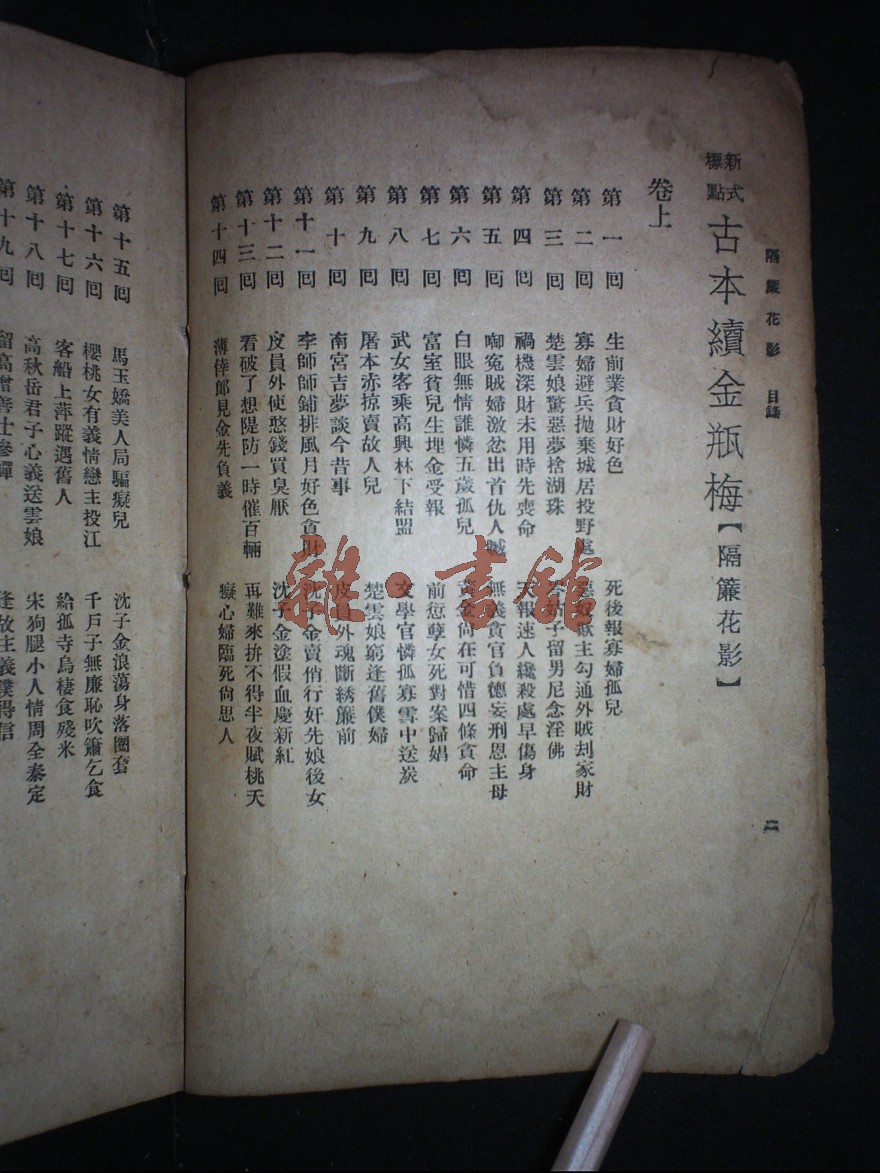 隔簾花影 目錄
新式標點 古本續金瓶梅【隔簾花影】
卷上
第一囘 生前業貪財好色 死後報寡婦孤兒
第二囘 寡婦避兵抛棄城居投野處 惡奴獻主勾通外賊刦家財
第三囘 楚雲娘驚惡夢捨湖珠 姑子留男尼念淫佛
第四囘 禍機深財未用時先喪命 天報速人纔殺處早傷身
第五囘 啣冤賊婦激忿出首仇人贓 無義貪官負德妄刑恩主母
第六囘 白眼無情誰憐五歲孤兒 黃金何在可惜四條貪命
第七囘 富室貧兒生埋金受報 前愆孽女死對案歸娼
第八囘 武女客乘高興林下結盟 文學官憐孤寡雪中送炭
第九囘 屠本赤掠賣故人兒 楚雲娘窮逢舊僕婦
第十囘 南宮吉夢談今昔事 皮員外魂斷綉簾前
第十一囘 李師師鋪排風月好色貪財 沈子金賣俏行奸先娘後女
第十二囘 皮員外使憨錢買臭厭 沈子金塗假血慶新紅
第十三囘 看破了想隄防一時催百輛 再難來拚不得半夜賦桃夭
第十四囘 薄倖郎見金先負義 癡心婦臨死尙思人
第十五囘 馬玉嬌美人局騙癡兒 沈子金浪蕩身落圈套
第十六囘 櫻桃女有義情戀主投江 千戶子無廉恥吹簫乞食
第十七囘 客船上萍蹤遇舊人 給孤寺鳥棲食殘米
第十八囘 高秋岳君子心義送雲娘 宋狗腿小人情周全泰定
第十九囘 留高僧善士參禪 逢故主義僕得信
雜·書館